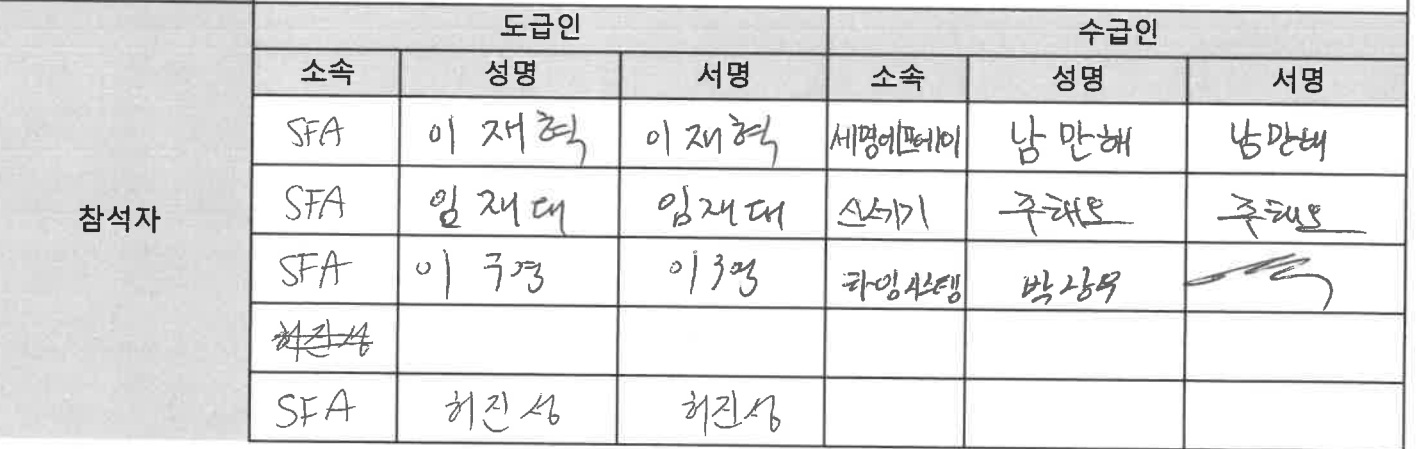 도급인 수급인
소속 성명 서명 소속 성명 서명
SFA 이재혁 이재혁 세명에프에이 남만해 남만해
참석자
SFA 임재대 임재대 주태오 주태오
SFA 이구경 이구경 타임시스템 박상우
허진성
SFA 허진성 허진성